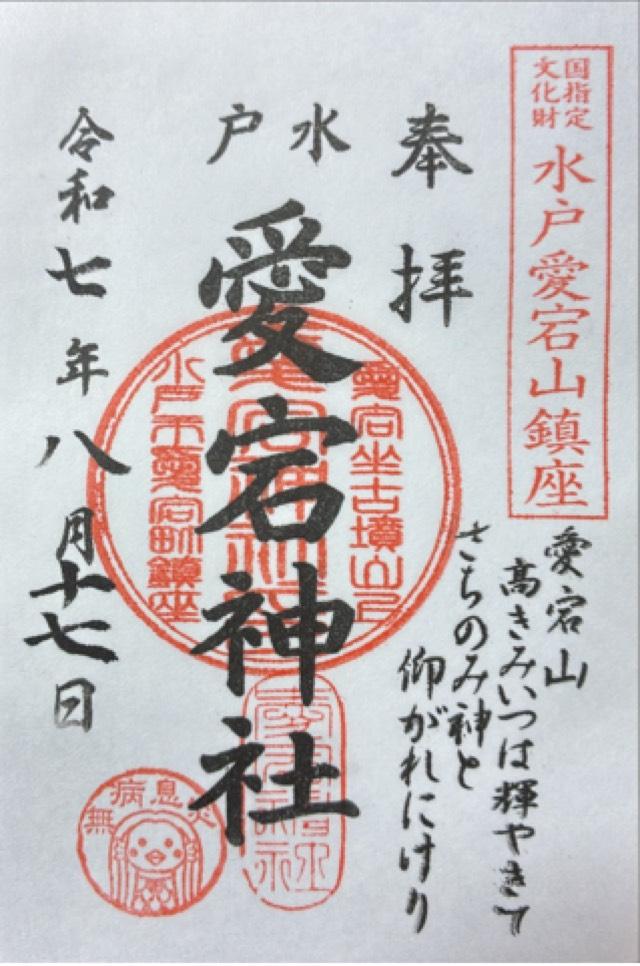 国指定
文化財
水戸愛宕山鎮座
奉拝
水戸
愛宕神社
令和七年八月十七日
愛宕山
高きみいつは輝やきて
さちのみ神と
仰がれにけり
水戸市愛宕町鎮座
無病息災